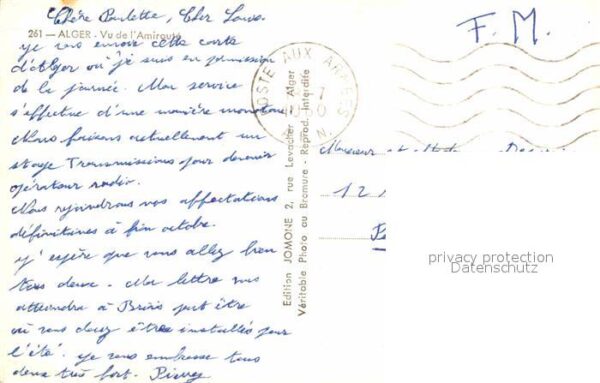 Chère Paulette, Cher Louis.
261 — ALGER - Vu de l'Amirauté
je vous envoie cette carte
d'Alger où je suis en permission
de la journée. Mon service
s'effectue d'une manière monotone
Nous faisons actuellement un
stage Transmissions pour devenir
opérateur radio.
Nous rejoindrons nos affectations
définitives à fin octobre.
J'espère que vous allez bien
tous deux. Ma lettre vous
attendra à Brinis peut être
où vous devez être installés pour
l'été. je vous embrasse tous
deux très fort. Pierre
Edition JOMONE 2, rue Levacher - Alger
Véritable Photo au Bromure - Reprod. interdite
F. M.
POSTE AUX ARMÉES
Monsieur et
12
privacy protection
Datenschutz